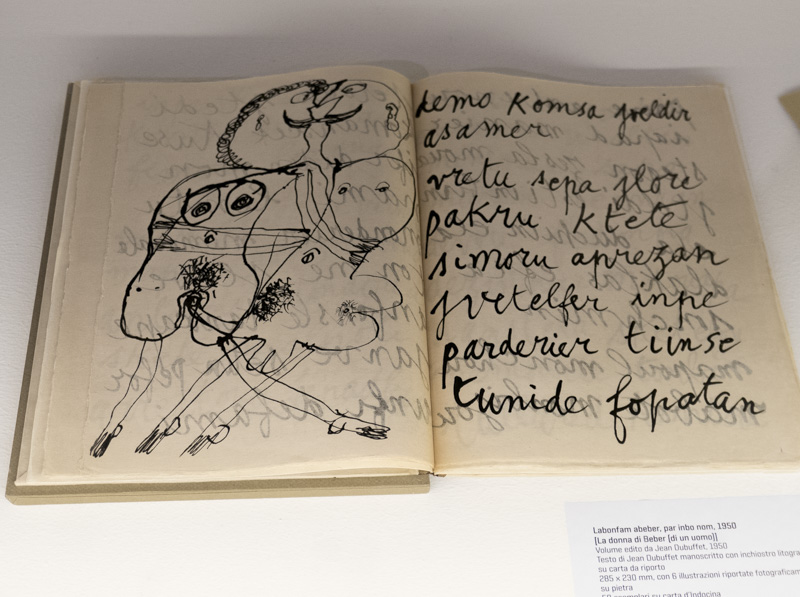 kemo komsa jveldir
asamer
vretu sepa jlore
pakru ktete
simoru aprezan
jvetelfer inpe
parderier tiinse
tunide fopatan
Labonfam abeber, par inbo nom, 1950
[La donna di Beber (di un uomo)]
Volume edito da Jean Dubuffet, 1950
Testo di Jean Dubuffet manoscritto con inchiostro litogra
su carta da riporto
285 x 230 mm, con 6 illustrazioni riportate fotograficam
su pietra
50 esemplari su carta d'Indocina